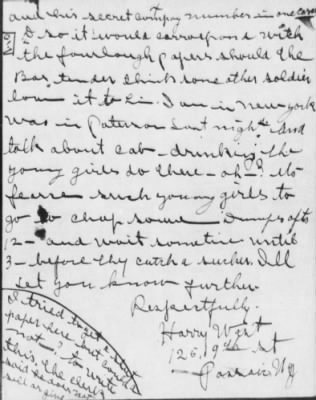 and his secret company number in one case
D so it would correspond with
the fourlough papers should the
Bar tender think some other soldier
loan it to him. I am in new york
was in Paterson Last night. And
talk about cab - drinking the
young girls do there - oh - ! to
such young girls to
go to chop some Dumps aft
12 - and wait sometime until
3 - before they catch a sucker. Ill
Let you know further
Respectfully.
Harry West
126. 9th St
Passaic NJ
I tried to get a sheet
paper here but could
not? to write
this, the clerk
said he does not
sell or give